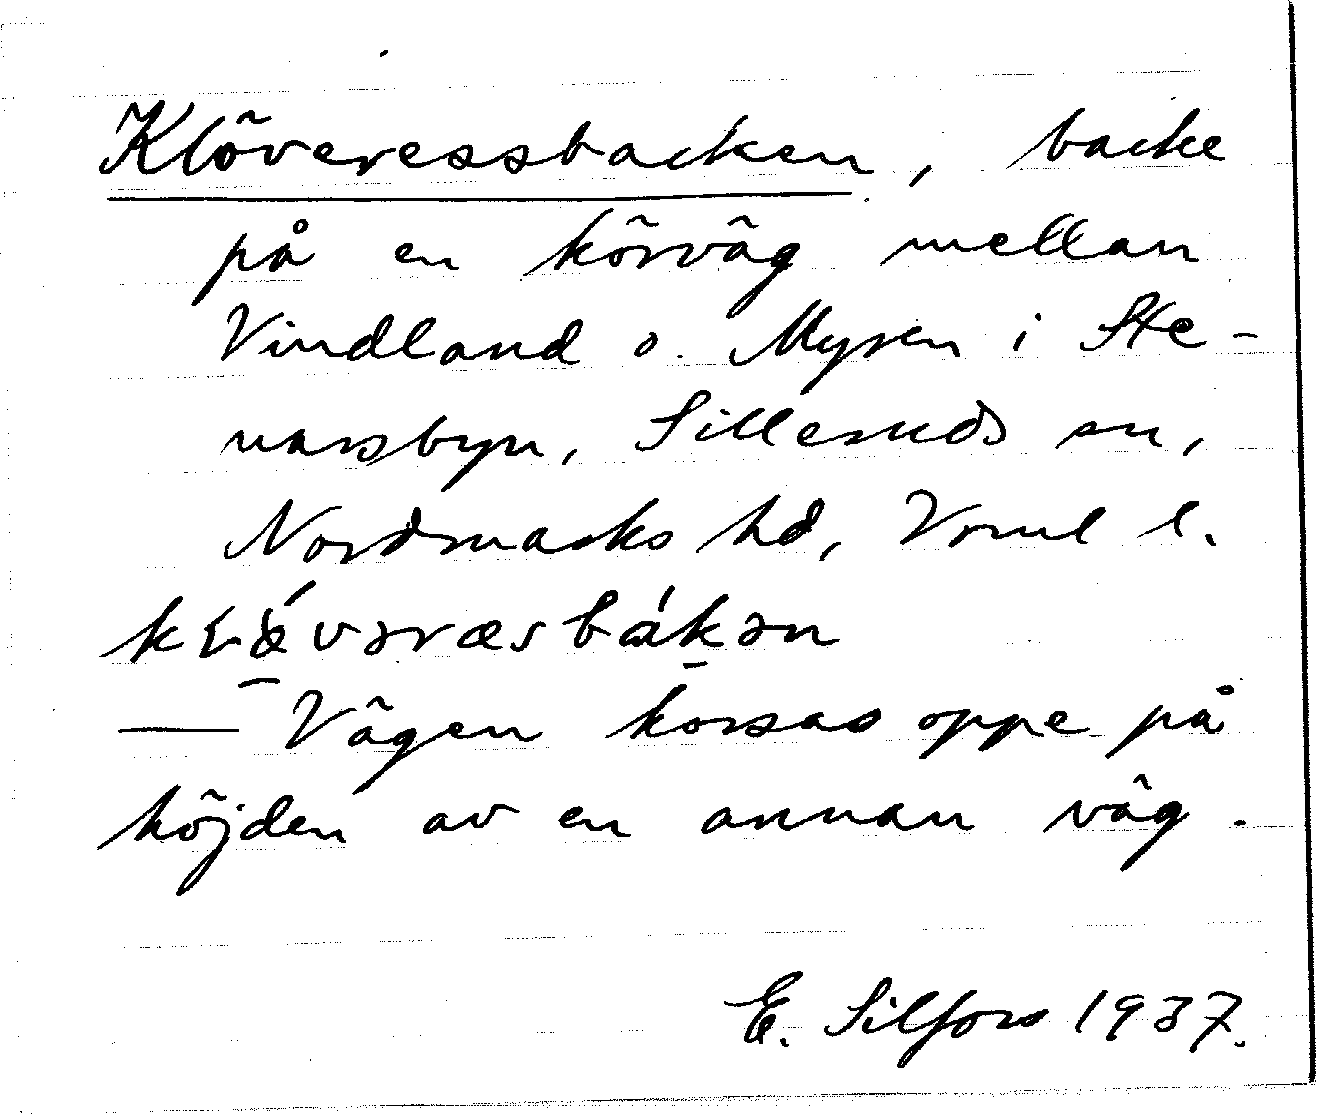 Klöveressbacken, backe
på en körväg mellan
Vindland o. Myren i Ste-
narsbyn, Silleruds sn,
Nordmarks hd, Vrml l.
Vägen korsas oppe på
höjden av en annan väg.
E. Silfors 1937.